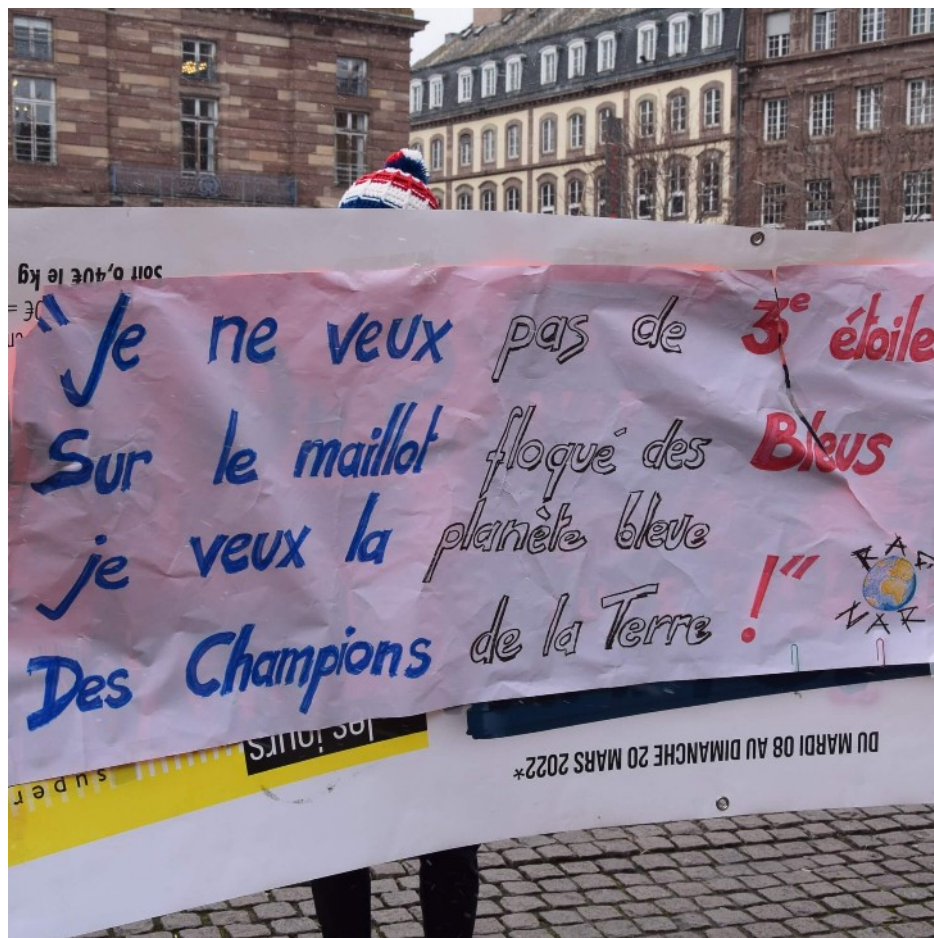 soit 6,40€ le kg
"Je ne veux pas de 3e étoile
Sur le maillot floqué des Bleus
je veux la planète bleue
Des Champions de la Terre !"
RAF
NAR
les jours
super
DU MARDI 08 AU DIMANCHE 20 MARS 2022*